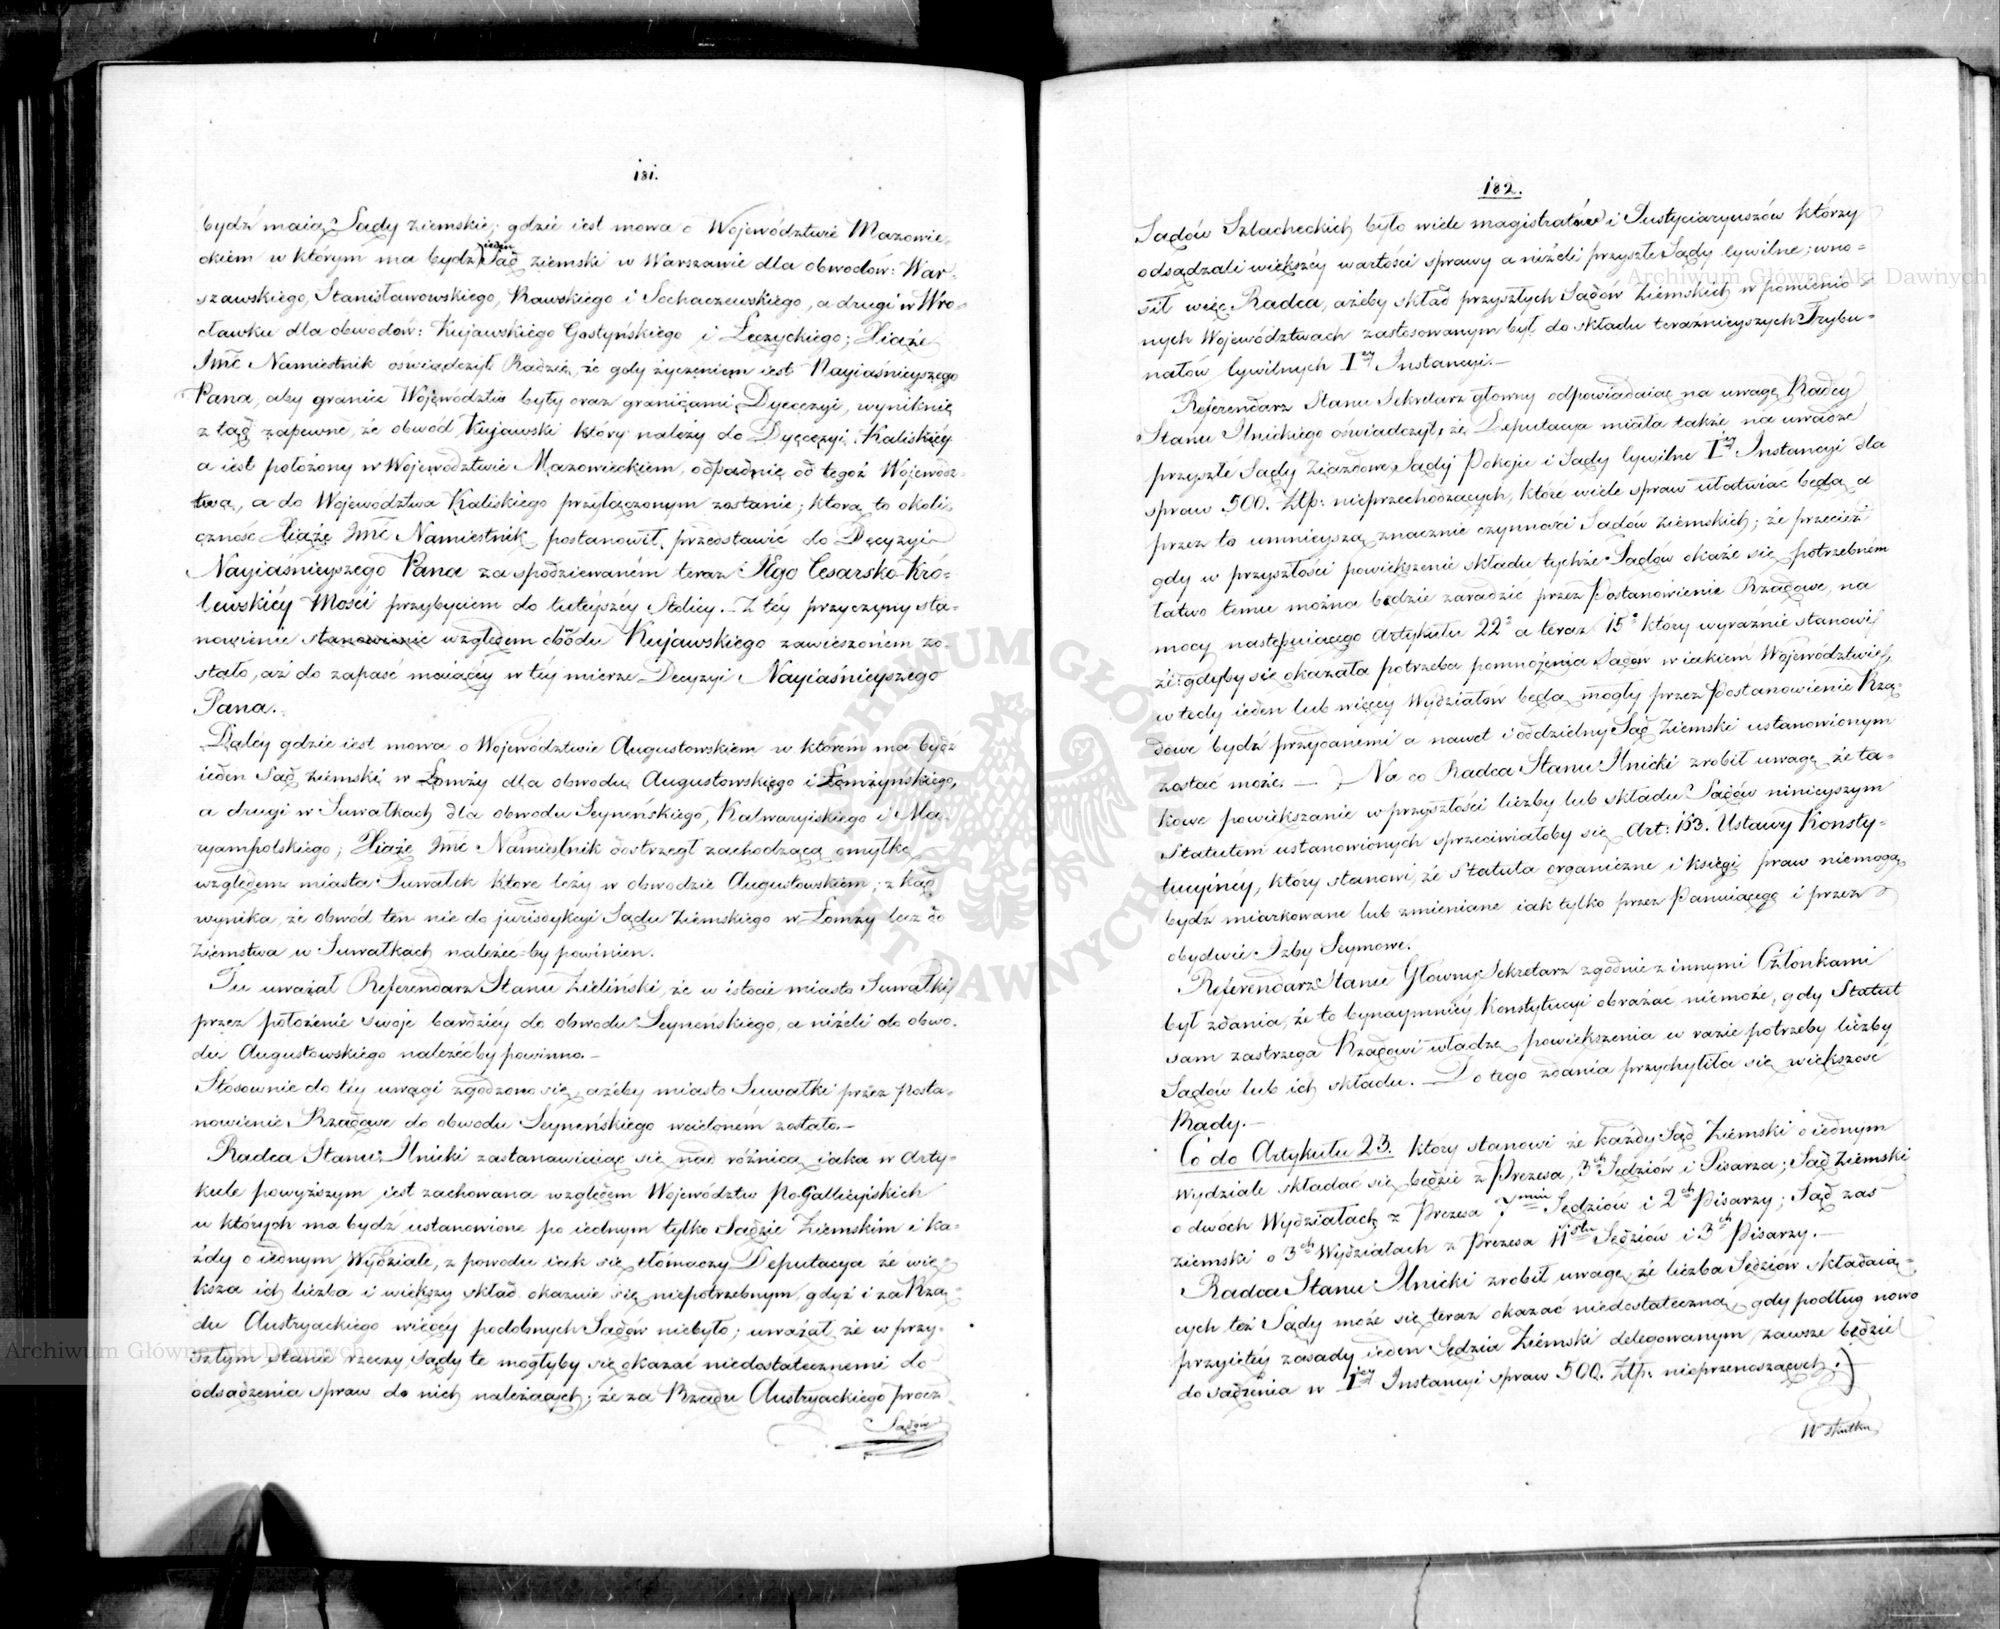 181.
bydź maią Sądy Ziemskie; gdzie iest mowa o Województwie Mazowie-
ckiem w którym ma bydź ieden Sąd Ziemski w Warszawie dla obwodów: War-
szawskiego, Stanisławowskiego, Rawskiego i Sochaczewskiego, a drugi w Wro-
cławku dla obwodów: Kujawskiego Gostyńskiego i Łęczyckiego; Xiąże
Jmć Namiestnik oświadczył Radzie, że gdy życzeniem iest Nayiaśnieyszego
Pana, aby granice Województw były oraz granicami Dyecezyi, wyniknie
z tąd zapewne, że obwód Kujawski który należy do Dyecezyi Kaliskiey
a iest położony w Województwie Mazowieckiem, odpadnie od tegoż Wojewódz-
twa, a do Województwa Kaliskiego przyłączonym zostanie; którą to okoli-
czność Xiąże Jmć Namiestnik postanowił przedstawić do Decyzyi
Nayiaśnieyszego Pana za spodziewaném teraz Jego Cesarsko-Kró-
lewskiéy Mości przybyciem do tuteyszéy Stolicy. Z téy przyczyny sta-
nowienie stanowienie względem obwodu Kujawskiego zawieszoném zo-
stało, aż do zapaść maiącéy w téy mierze Decyzyi Nayiaśnieyszego
Pana.
Daléy gdzie iest mowa o Województwie Augustowskiem w którém ma bydź
ieden Sąd Ziemski w Łomży dla obwodu Augustowskiego i Łomżyńskiego,
a drugi w Suwałkach dla obwodu Seyneńskiego, Kalwaryiskiego i Ma-
ryampolskiego; Xiąże Jmć Namiestnik dostrzegł zachodzącą omyłkę
względem miasta Suwałek które leży w obwodzie Augustowskiem; z kąd
wynika, że obwód ten nie do jurisdykcyi Sądu Ziemskiego w Łomży lecz do
Ziemstwa w Suwałkach należeć-by powinien.
Tu uważał Referendarz Stanu Zieliński, że w istocie miasto Suwałki
przez położenie swoje bardziéy do obwodu Seyneńskiego, a niżeli do obwo-
du Augustowskiego należéćby powinno.-
Stósownie do téy uwagi zgodzono się, ażeby miasto Suwałki przez posta-
nowienie Rządowe do obwodu Seyneńskiego wcieloném zostało.-
Radca Stanu Ilnicki zastanawiaiąc się nad różnicą iaka w Arty-
kule powyższym iest zachowana względem Województw Po-Gallicyiskich
w których ma bydź ustanowione po iednym tylko Sądzie Ziemskim i ka-
żdy o iednym Wydziale, z powodu iak się tłómaczy Deputacya że wię-
ksza ich liczba i większy skład okazuie się niepotrzebnym, gdyż i za Rzą-
du Austryackiego więcéy podobnych Sądów niebyło; uważał, że w przy-
szłym stanie rzeczy, sądy te mogłyby się okazać niedostatecznemi do
odsądzenia spraw do nich należących; że za Rządu Austryackiego prócz
Sądów
182.
Sądów Szlacheckich było wiele magistratów i Justycyaryuszów którzy
odsądzali większéy wartości sprawy a niżeli przyszłe Sądy Cywilne; wno-
sił więc Radca, ażeby skład przyszłych Sądów Ziemskich w pomienio-
nych Województwach zastosowanym był do składu teraźnieyszych Trybu-
nałów Cywilnych Iey Instancyi.-
Referendarz Stanu Sekretarz główny odpowiadaiąc na uwagę Radcy
Stanu Ilnickiego oświadczył, że Deputacya miała także na uwadze
przyszłe Sądy Ziazdowe, Sądy Pokoju i Sądy Cywilne Iey Instancyi dla
spraw 500. Złp: nieprzechodzących, które wiele spraw ułatwiać będą a
przez to umnieyszą znacznie czynności Sądów Ziemskich; że przecież
gdy w przyszłości powiększenie składu tychże Sądów okaże się potrzebném
łatwo temu można będzie zaradzić przez Postanowienie Rządowe, na
mocy następuiącego Artykułu 22o a teraz 15o który wyraźnie stanowi
że: gdyby się okazała potrzeba pomnożenia Sądów w iakiem Województwie,
wtedy ieden lub więcéy Wydziałów będą mogły przez Postanowienie Rzą-
dowe bydź przydanemi a nawet i oddzielny Sąd Ziemski ustanowionym
zostać może. — Na co Radca Stanu Ilnicki zrobił uwagę że ta-
kowe powiększanie w przyszłości liczby lub składu Sądów ninieyszym
Statutem ustanowionych sprzeciwiałoby się Art: 163. Ustawy Konsty-
tucyinéy, który stanowi, że Statuta organiczne i księgi praw niemogą
bydź miarkowane lub zmieniane iak tylko przez Panuiącego i przez
obydwie Izby Seymowe.
Referendarz Stanu Główny Sekretarz zgodnie z innymi Członkami
był zdania, że to bynaymniéy Konstytucyi obrażać niemoże, gdy Statut
sam zastrzega Rządowi władzę powiększenia w razie potrzeby liczby
Sądów lub ich składu. Do tego zdania przychyliła się większość
Rady.-
Co do Artykułu 23. który stanowi że każdy Sąd Ziemski o iednym
Wydziale składać się będzie z Prezesa, 3ch Sędziów i Pisarza; Sąd Ziemski
o dwóch Wydziałach z Prezesa 7miu Sędziów i 2ch Pisarzy; Sąd zaś
Ziemski o 3ch Wydziałach z Prezesa 11stu Sędziów i 3ch Pisarzy.-
Radca Stanu Ilnicki zrobił uwagę, że liczba Sędziów składaią-
cych też Sądy może się teraz okazać niedostateczną, gdy podług nowo
przyiętéy zasady ieden Sędzia Ziemski delegowanym zawsze będzie
do sądzenia w Iey Instancyi spraw 500. Złp: nieprzenoszących.
W skutku
Archiwum Główne Akt Dawnych
Archiwum Główne Akt Dawnych
ARCHIWUM GŁÓWNE AKT DAWNYCH